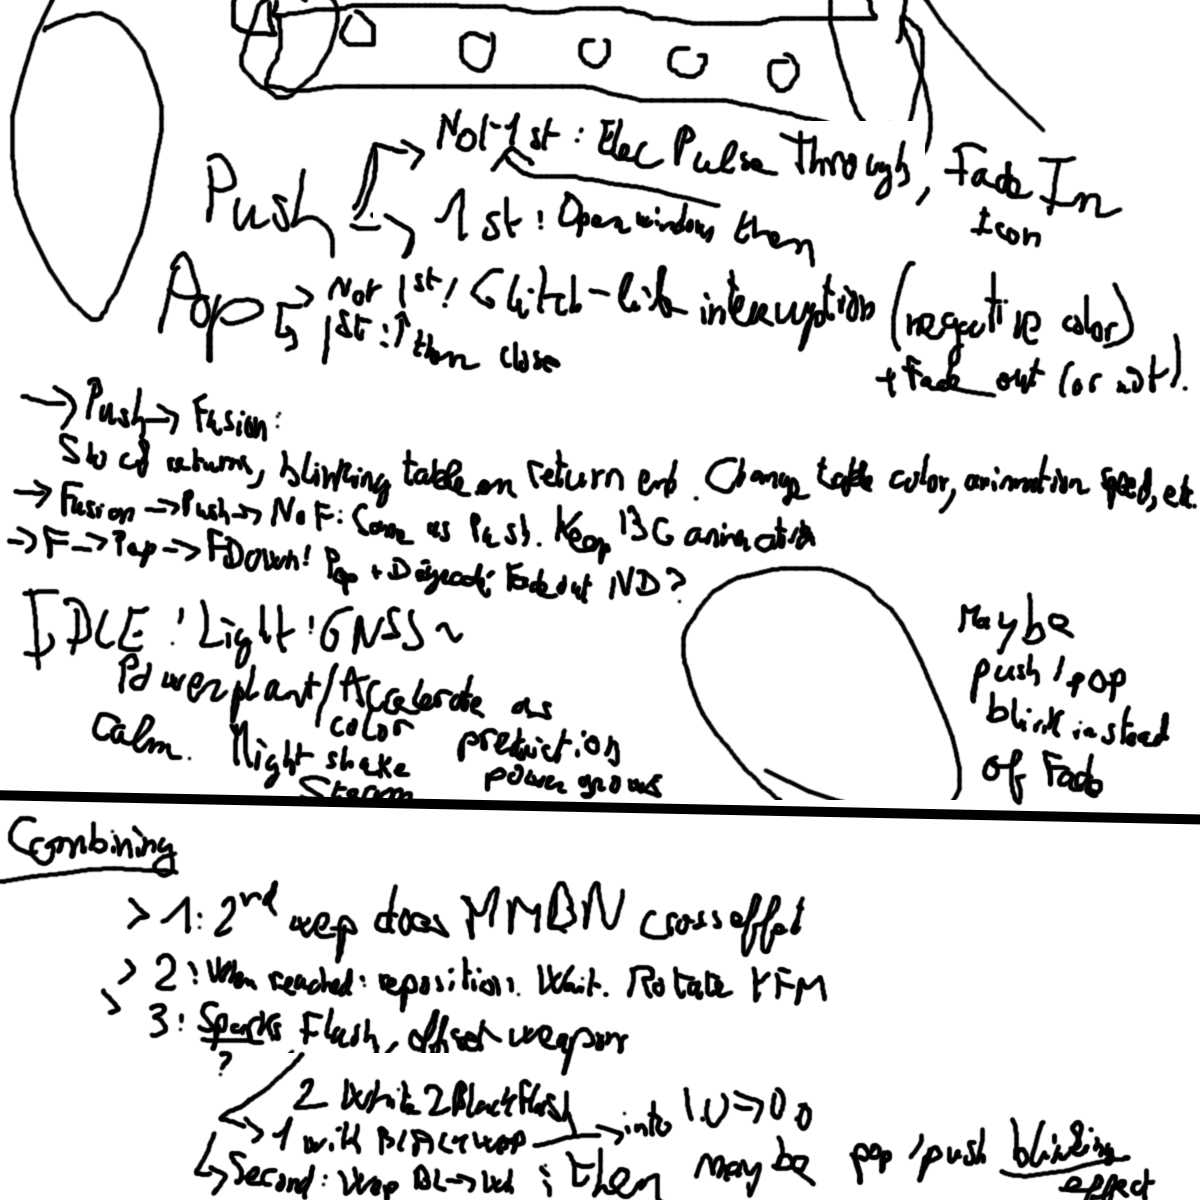 Not 1st : Elec Pulse Through, Fade In
Icon
Push
1st : Open windows then
Pop
Not 1st! Glitch-like interruption (negative color)
+ Fade out (or not).
1st : then close
→ Push → Fusion:
returns, blinking table on return end. Change table color, animation speed, etc.
→ Fusion → Push → No F: Same as Push. Keep animation
→ F → Pop → FDown! Pop + Fade out ND?
IDLE ! Light ! GNSS ~
Powerplant/Accelerate as
color
calm. Night shake
prediction
power grows
Storm
Maybe
push/pop
blink instead
of Fade
Combining
> 1: 2nd wep does MMBN cross effet
> 2: When reached: reposition. Wait. Rotate
> 3: Sparks Flash, offset weapon
?
2 White 2 Black Flash
→ 1 with Black wep → into 1.0 => 0.0
Second: Wep BL → Wh ; then maybe pop/push blinking
effect